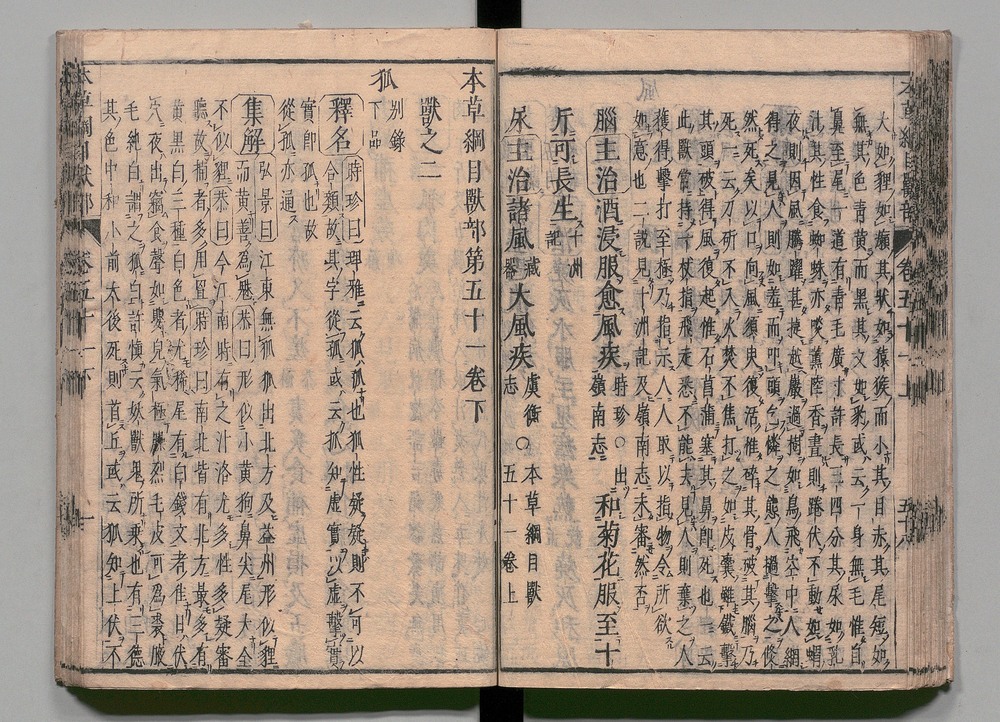 大如貍如獺其狀如猿猴而小其目赤其尾短如
無其色青黃而黑其文如豹或云一身無毛惟自
鼻至尾一道有青毛廣寸許長三四分其尿如乳
汁其性食蜘蛛亦啖薰陸香晝則踡伏不動如螬
夜則因風騰躍甚捷越巖過樹如鳥飛空中人網
得之見人則如羞而叩頭乞憐之態人撾擊之倐
然死矣以口向風須臾復活惟碎其骨破其腦乃
死一云刀斫不入火焚不焦打之如皮囊雖鐵擊
其頭破得風復起惟石菖蒲塞其鼻即死也一云
此獸常持一杖指飛走悉不能去見人則棄之人
獲得擊打至極乃指示人人取以指物令所欲
如意也二說見十洲記及嶺南志未審然否
腦主治酒浸服愈風疾時珍○出嶺南志 和菊花服至十
斤可長生十洲記
尿主治諸風藏器大風疾虞衡志○本草綱目獸五十一卷上
本草綱目獸部第五十一卷下
獸之二
狐別錄下品
釋名時珍曰埤雅云狐孤也狐性疑疑則不可以
合類故其字從孤或云狐知虛實以虛擊實
實即孤也故
從孤亦通
集解弘景曰江東無狐狐出北方及益州形似貍
而黃善為魅恭曰形似小黃狗鼻尖尾大全
不似貍恭曰今江南時有之汁洛尤多性多疑審
聽故捕者多用罝時珍曰南北皆有北方最多有
黃黑白三種白色者尤稀尾有白錢文者佳日伏
穴夜出竊食聲如嬰兒氣極臊烈毛皮可為裘腋
毛純白謂之狐白許慎云妖獸鬼所乘也有三德
其色中和小前大後死則首丘或云狐知上伏不